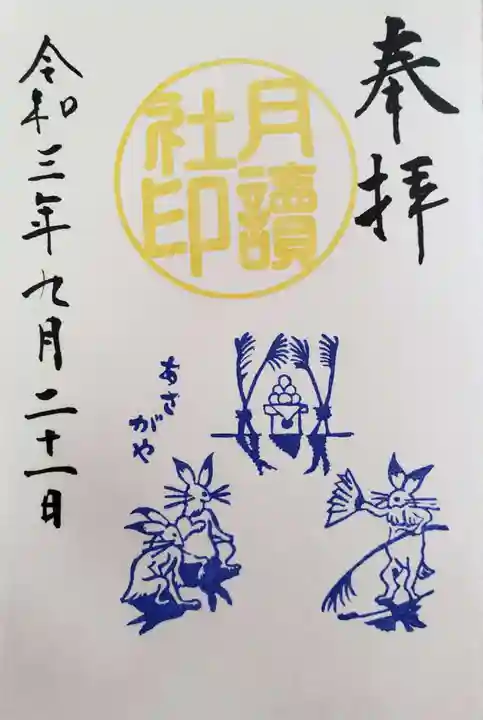 奉拝
月讀
社印
あさ
がや
令和三年九月二十一日